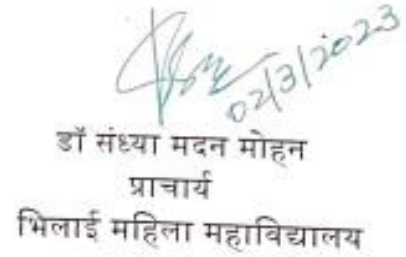 02/3/2023
डॉ संध्या मदन मोहन
प्राचार्य
भिलाई महिला महाविद्यालय